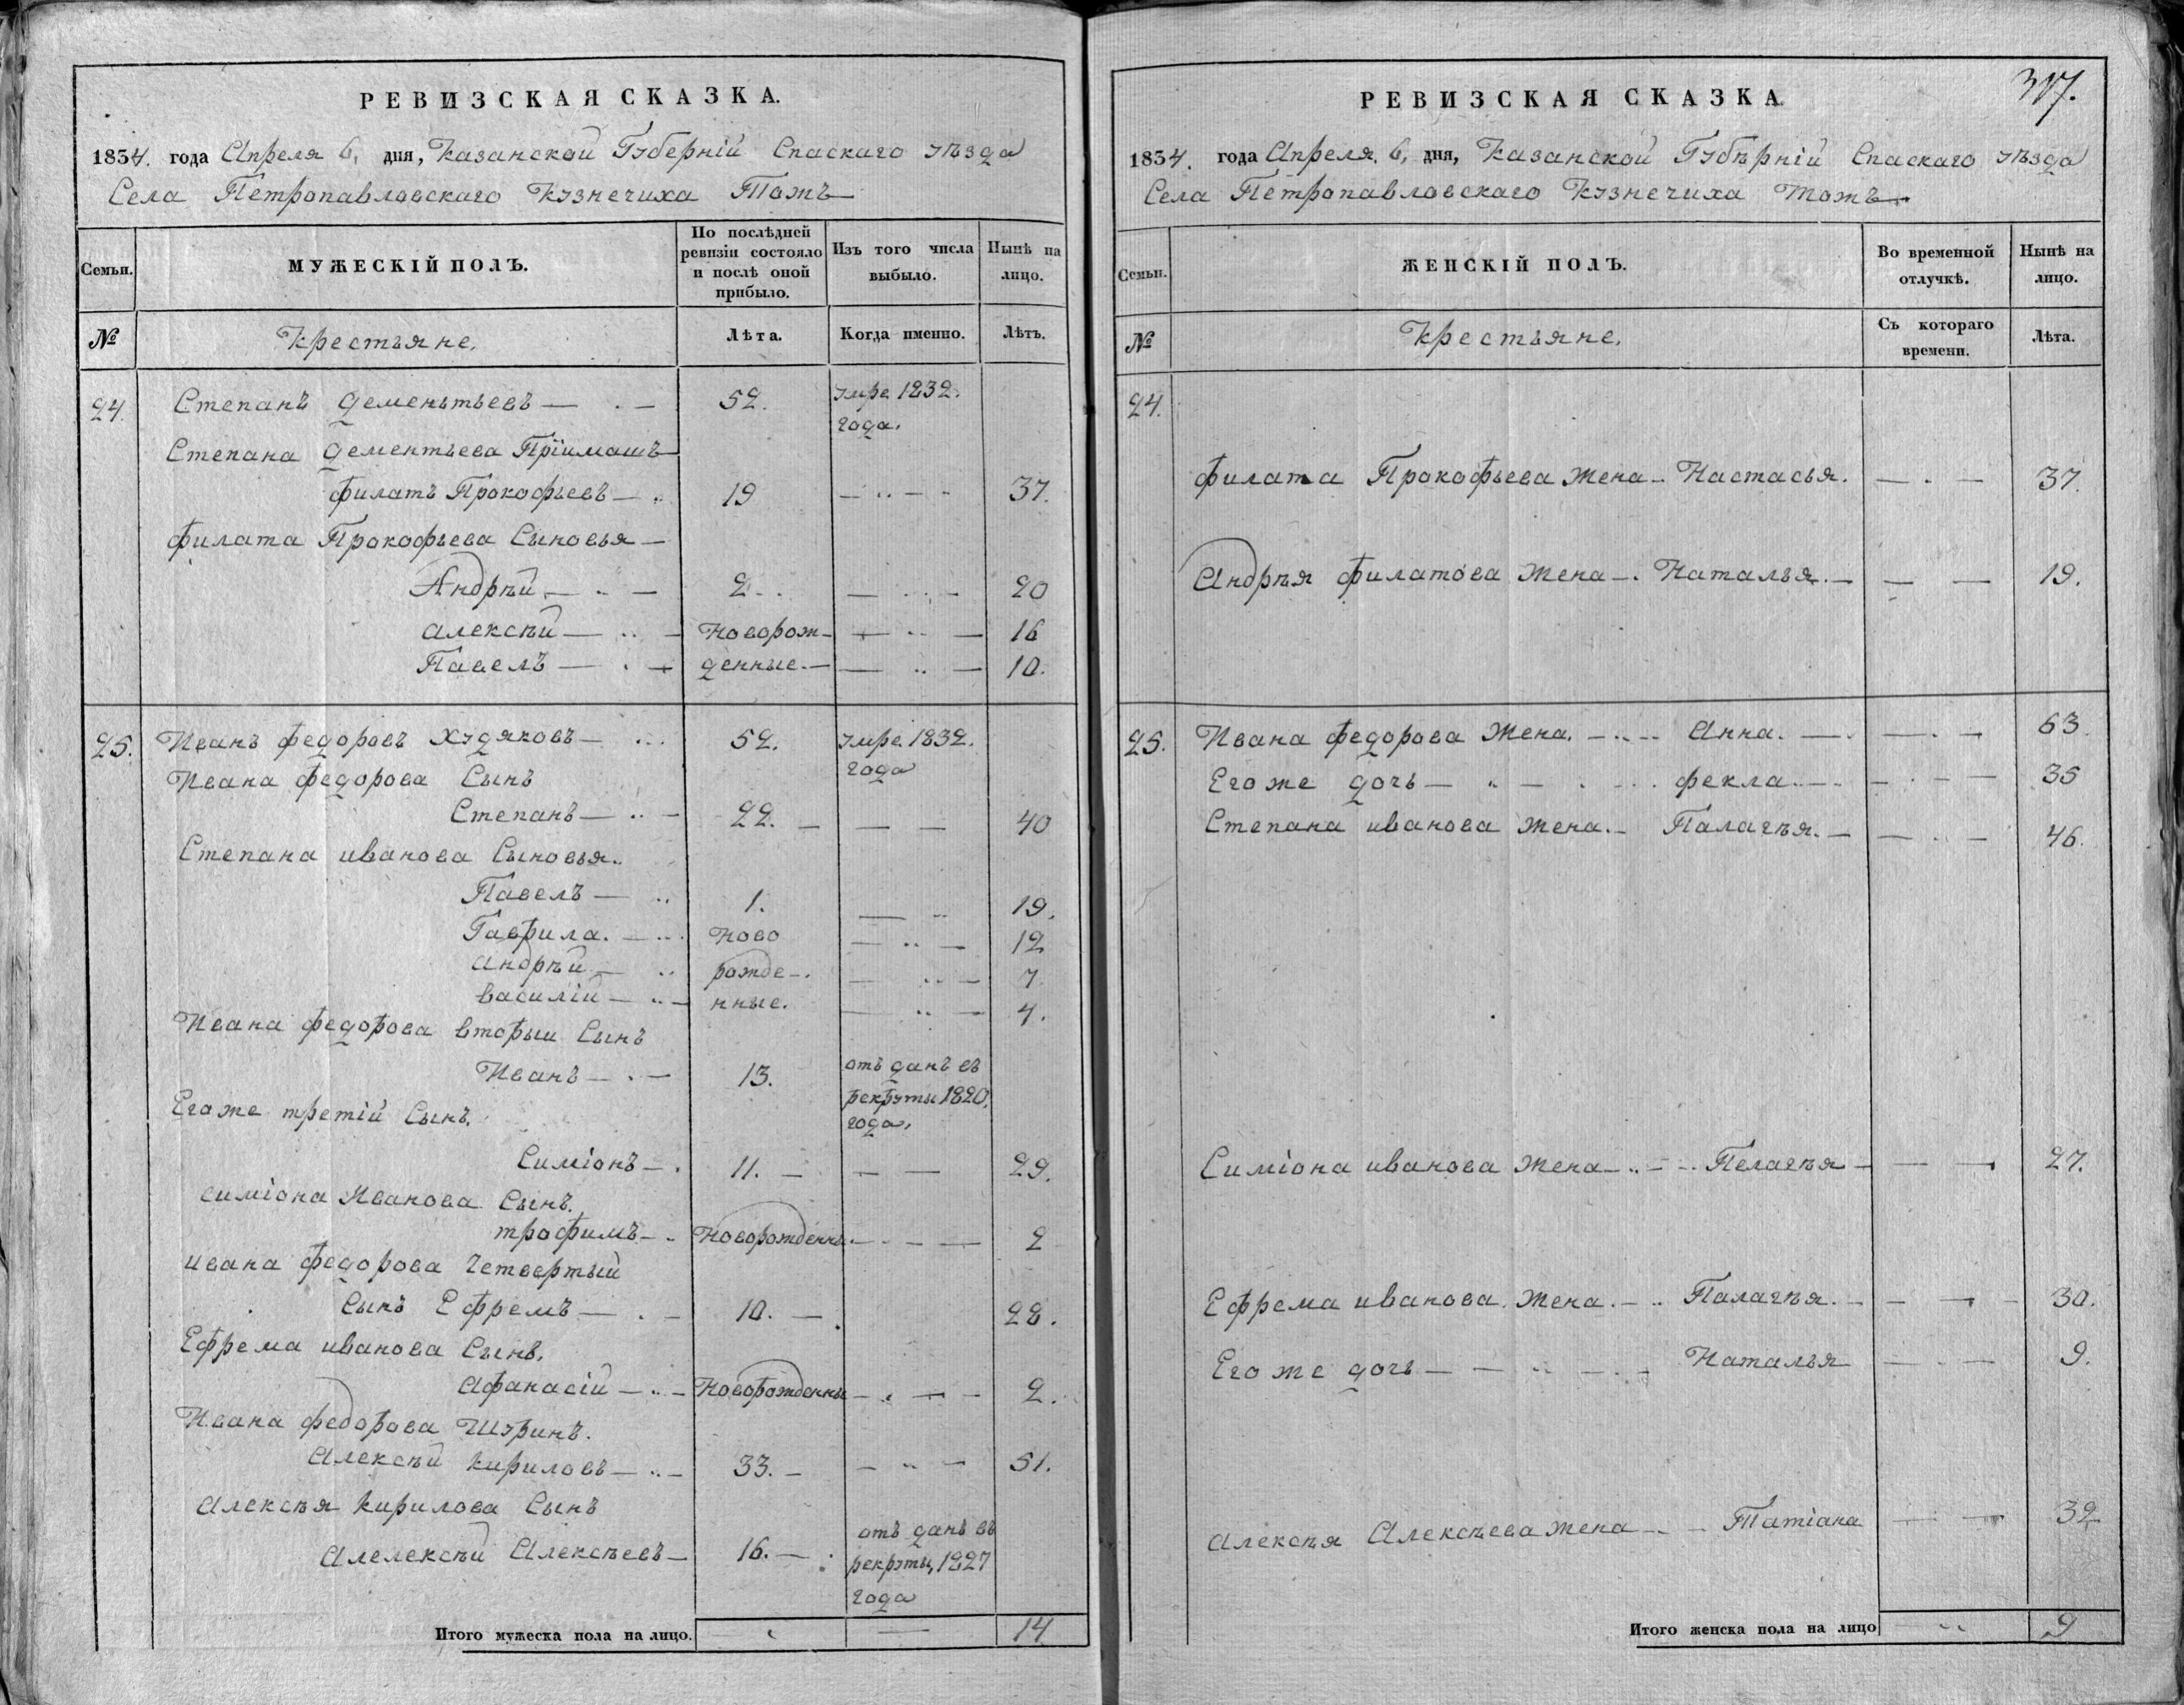 РЕВИЗСКАЯ СКАЗКА.
1834. года Апреля 6, дня, Казанской Губерній Спаскаго уѣзда
Села Петропавловскаго Кузнечиха Тожъ
Семьи.
МУЖЕСКІЙ ПОЛЪ.
По послѣдней ревизіи состояло и послѣ оной прибыло.
Изъ того числа выбыло.
Нынѣ на лицо.
№
Крестьяне.
Лѣта.
Когда именно.
Лѣтъ.
24. Степанъ Дементьевъ — . — 52. умре 1832.
года.
Степана Дементьева Пріимашъ
Филатъ Прокофьевъ — .. 19 — .. — - 37.
Филата Прокофьева Сыновья —
Андрѣй — .. — 2. . — . . - 20
Алексѣй — .. — Новорож- — .. — 16
Павелъ — . — денные. — — .. — 10.
25. Иванъ Федоровъ Худяковъ — ... 52. умре 1832.
года
Ивана Федорова Сынъ
Степанъ — .. — 22. — — — 40
Степана Иванова Сыновья..
Павелъ — .. 1. — .. 19.
Гаврила. — ... Ново — .. — 12
Андрѣй — .. рожде-. — .. — 7.
Василій — .. — нные. — .. — 4.
Ивана Федорова вторый Сынъ
Иванъ — . — 13. отъ данъ въ
рекруты 1820.
года.
Егоже третій Сынъ.
Симіонъ — . 11. — — — 29.
Симіона Иванова Сынъ.
трофимъ — . Новорожденны. — . — — 2
Ивана Федорова Четвертый
Сынъ Ефремъ — . — 10. — . 28.
Ефрема Иванова Сынъ.
Афанасій — .. — Новорожденны — . — - 2.
Ивана Федорова Шуринъ.
Алексѣй Кириловъ — .. — 33. — — .. — 51.
Алексѣя Кирилова Сынъ
Алелексѣй Алексѣевъ — 16. — . отъ данъ въ
рекруты, 1827
года
Итого мужеска пола на лицо. — 14
317.
РЕВИЗСКАЯ СКАЗКА.
1834. года Апреля. 6, дня, Казанской Губѣрній Спаскаго уѣзда
Села Петропавловскаго Кузнечиха Тожъ
Семьи.
ЖЕНСКІЙ ПОЛЪ.
Во временной отлучкѣ.
Нынѣ на лицо.
№
Крестьяне.
Съ котораго времени.
Лѣта.
24.
Филата Прокофьева Жена — Настасья. — . — 37.
Андрѣя Филатова Жена —. Наталья. — — — 19.
25. Ивана Федорова Жена. — .. — Анна. — . — . — 63.
Егоже дочь — .. — . ... Фекла. — — . — — 35
Степана Иванова Жена. — Палагѣя. — — .. — 46.
Симіона Иванова Жена — .. — .. Пелагѣя — — — 27.
Ефрема Иванова. Жена. — .. Палагѣя. — — — - 30.
Егоже дочь — — .. — . — Наталья — . — 9.
Алексѣя Алексѣева Жена — . — Татіана — — 32
Итого женска пола на лицо — .. 9